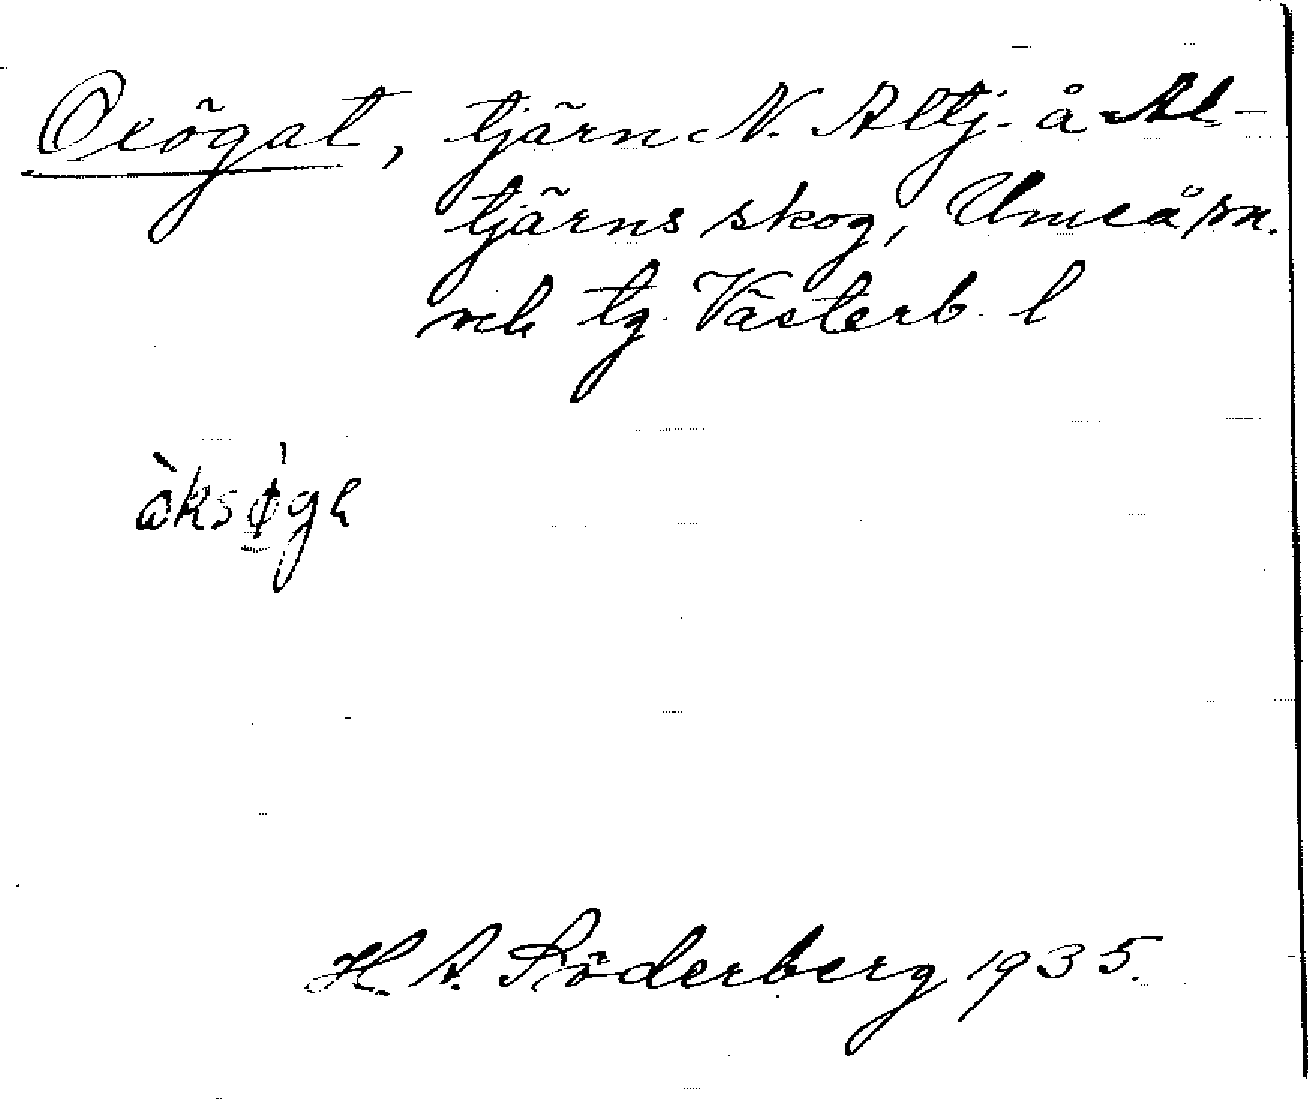 Oxögat, tjärn N. Altj. å Al-
tjärns skog, Umeå sn.
och tg. Västerb. l
òksøgɐ
H. A. Söderberg 1935.